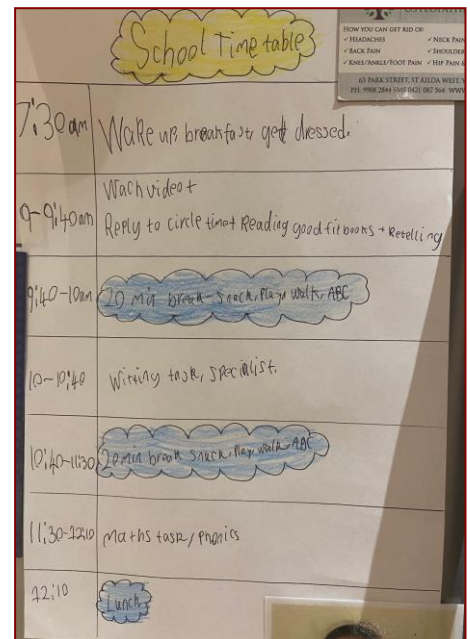 OSTEOPATHY
HOW YOU CAN GET RID OF:
✓ HEADACHES ✓ NECK PAIN
✓ BACK PAIN ✓ SHOULDER
✓ KNEE/ANKLE/FOOT PAIN ✓ HIP PAIN &
63 PARK STREET, ST KILDA WEST, V
PH. 9908 2844 SMS 0421 087 564 WWW
School Time table
7:30am Wake up, breakfast, get dressed.
9-9:40am Wach video +
Reply to circle time + Reading good fit books + Retelling
9:40-10am 20 min break - snack, Play, walk, ABC
10-10:40 Witing task, specialist.
10:40-11:30 20 min break snack, Play, walk, ABC
11:30-12:10 maths task/phonics
12:10 Lunch